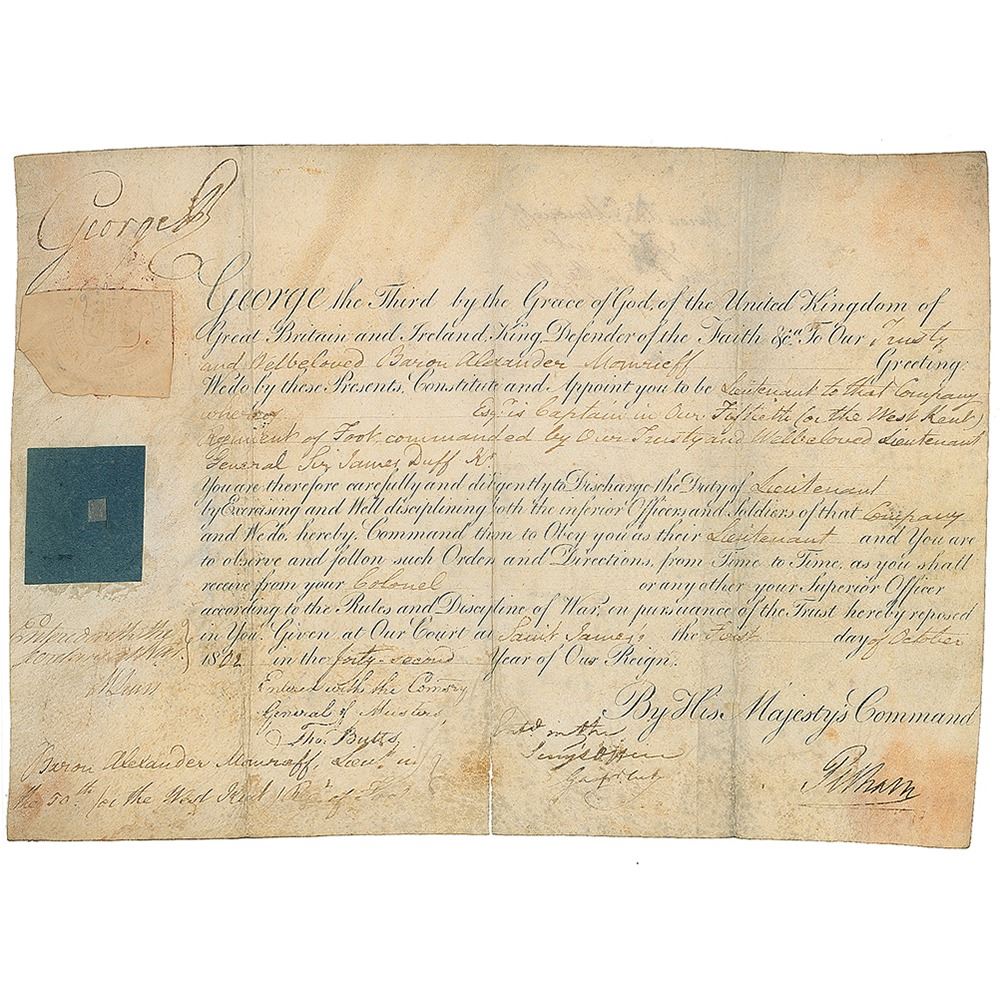 George R
George the Third by the Grace of God, of the United Kingdom of
Great Britain and Ireland, King, Defender of the Faith &ca. To Our Trusty
and Welbeloved Baron Alexander Moncrieff Greeting:
We do by these Presents, Constitute and Appoint you to be Lieutenant to that Company
whereof Esqr. is Captain in Our Fiftieth (or the West Kent)
Regiment of Foot commanded by Our Trusty and Welbeloved Lieutenant
General Sir James Duff Kt.
You are therefore carefully and diligently to Discharge the Duty of Lieutenant
by Exercising and Well disciplining both the inferior Officers and Soldiers of that Company
and We do hereby Command them to Obey you as their Lieutenant and You are
to observe and follow such Orders and Directions, from Time to Time, as you shall
receive from your Colonel or any other your Superior Officer
according to the Rules and Discipline of War, in pursuance of the Trust hereby reposed
in You. Given at Our Court at Saint James's the First day of October
1802 in the forty-second Year of Our Reign.
Entered with the
Secretary at War.
Entered with the Comsry
General of Musters,
Thos. Butts,
By His Majesty's Command
Pelham
Baron Alexander Moncrieff, Lieut. in
the 50th (or the West Kent) Regt. of Foot